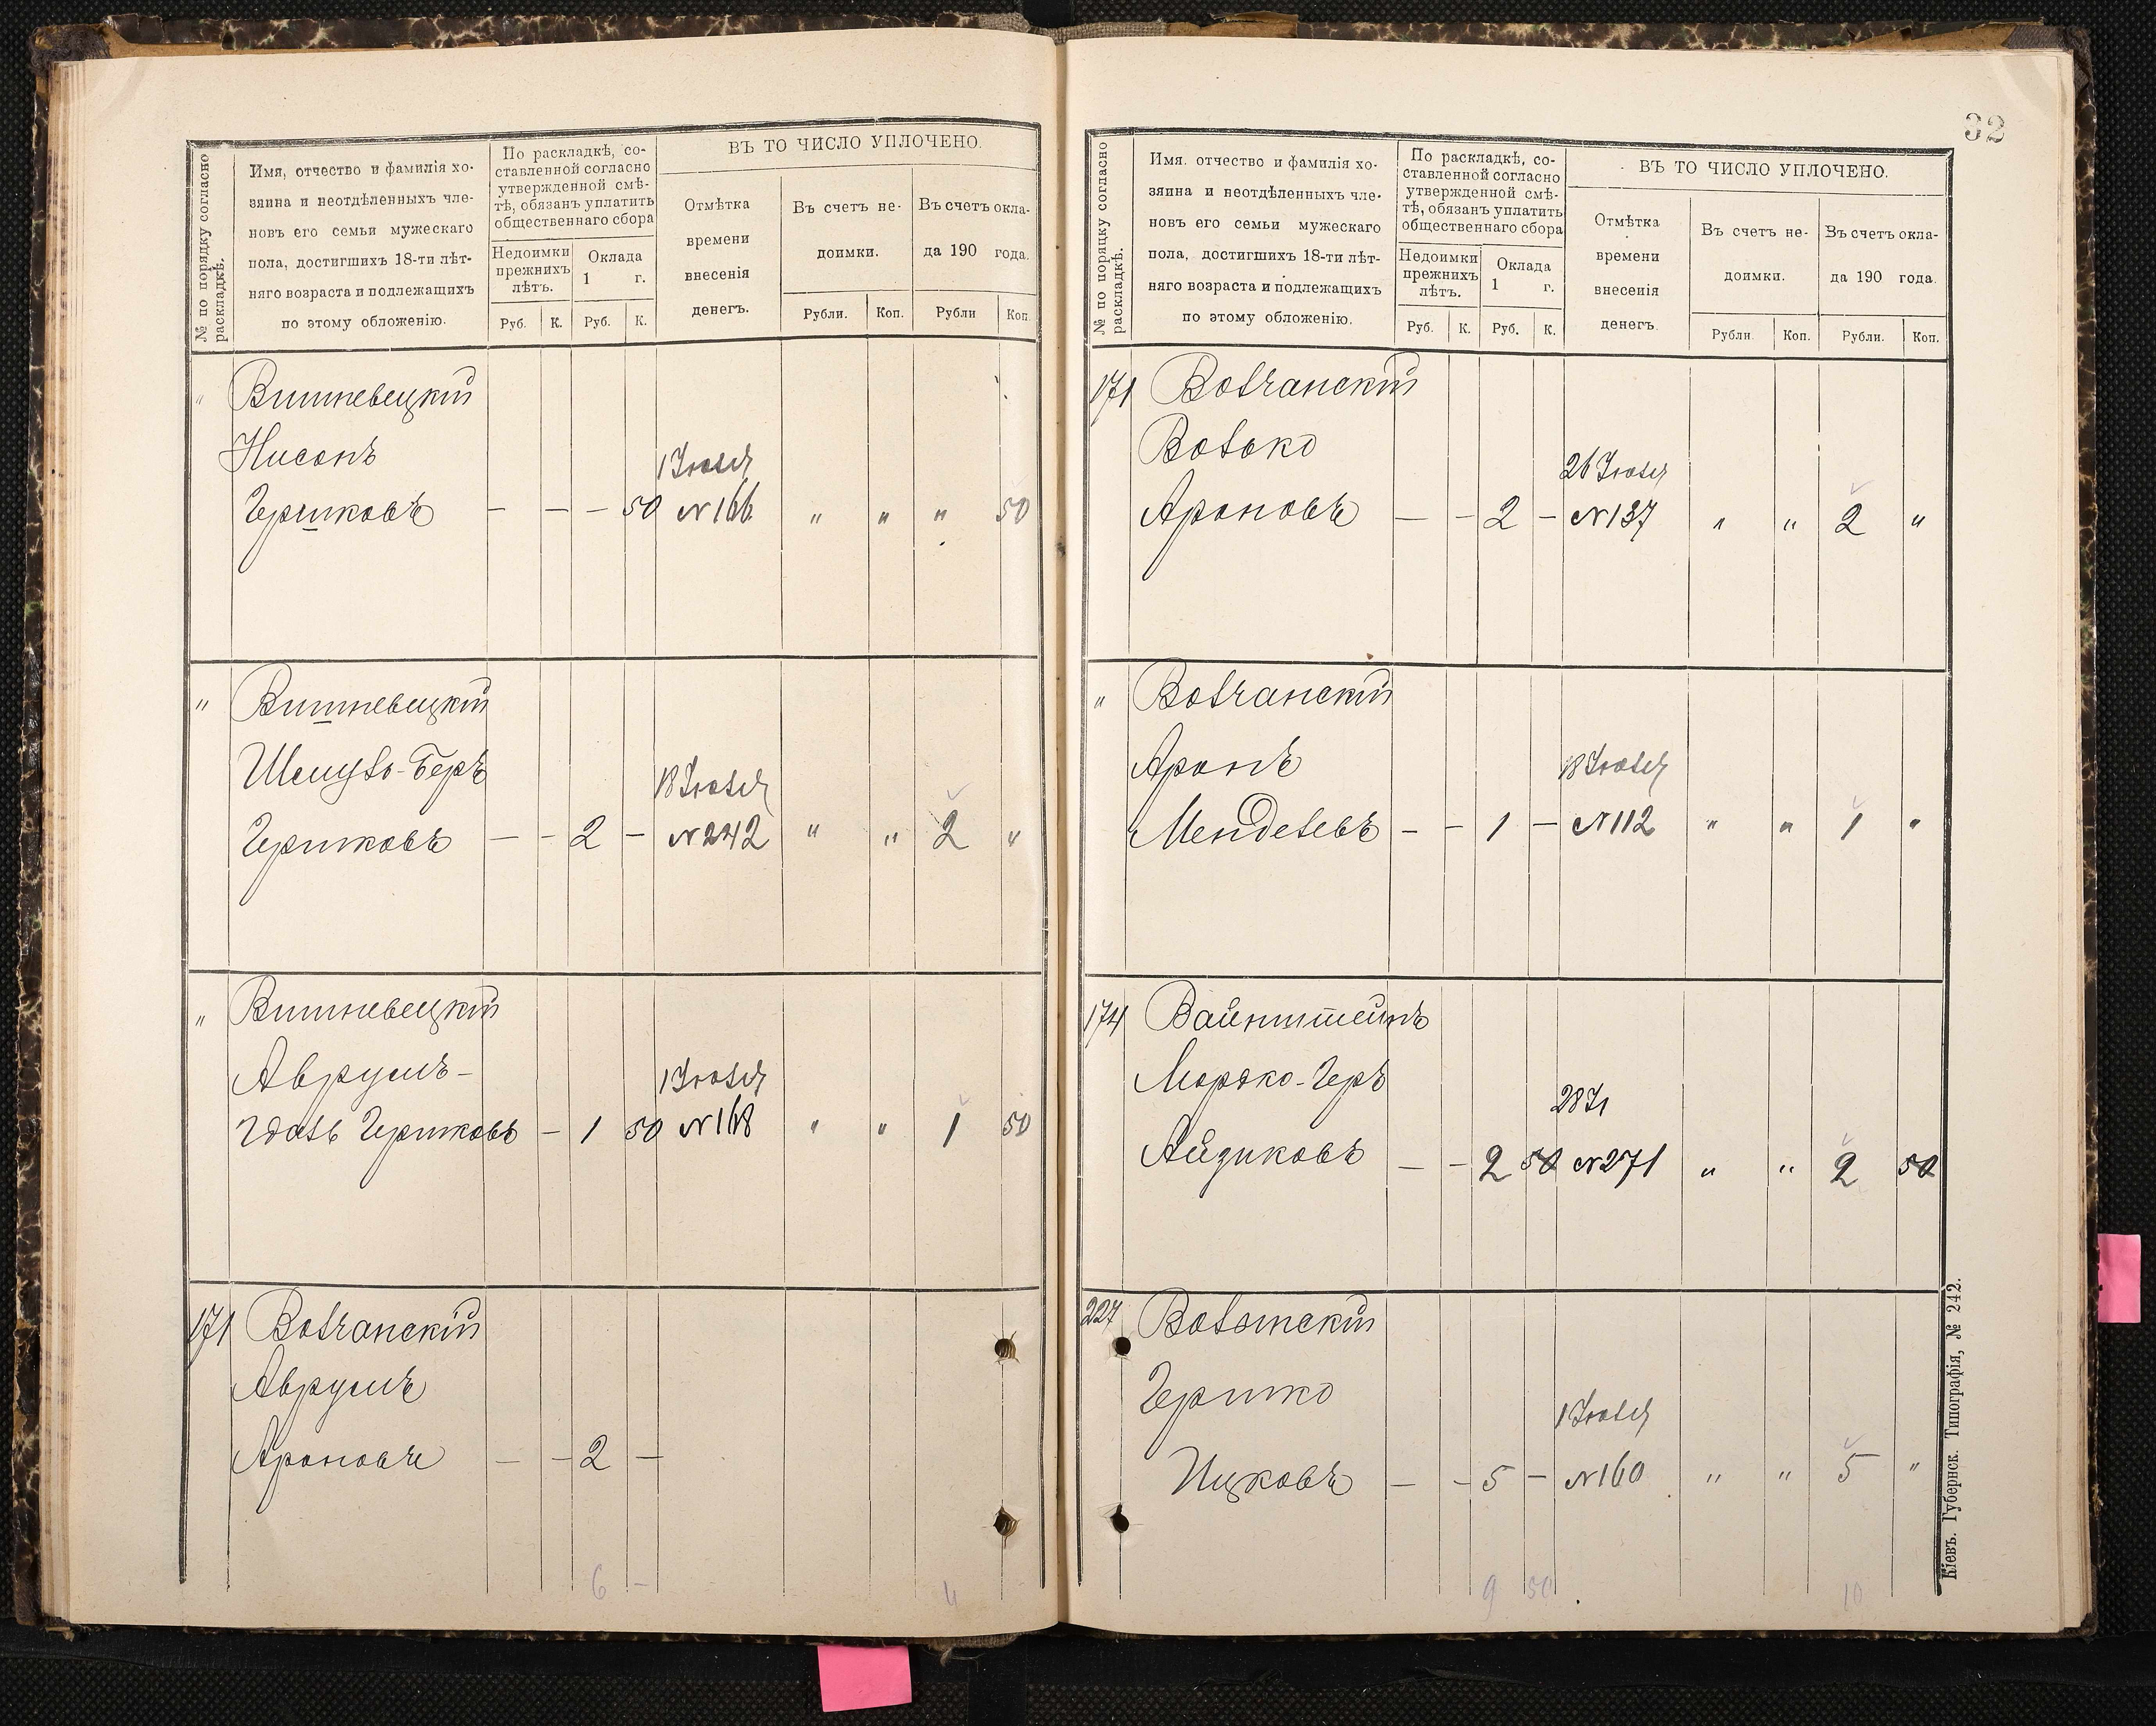 № по порядку согласно раскладкѣ.
Имя, отчество и фамилія хо-
зяина и неотдѣленныхъ чле-
новъ его семьи мужескаго
пола, достигшихъ 18-ти лѣт-
няго возраста и подлежащихъ
по этому обложенію.
По раскладкѣ, со-
ставленной согласно
утвержденной смѣ-
тѣ, обязанъ уплатить
общественнаго сбора
Недоимки
прежнихъ
лѣтъ.
Оклада
1 г.
Руб. К. Руб. К.
ВЪ ТО ЧИСЛО УПЛОЧЕНО.
Отмѣтка
времени
внесенія
денегъ.
Въ счетъ не-
доимки.
Въ счетъ окла-
да 190 года.
Рубли. Коп. Рубли Коп.
" Вишневецкій
Нисонъ
1 Іюля
Гершковъ — — — 50 №166 " " " 50
" Вишневецкій
Шмуль-Беръ
18 Іюля
Гершковъ — — 2 — №242 " " 2 "
" Вишневецкій
Аврумъ-
1 Іюля
Удаль Гершковъ — 1 50 №168 " " 1 50
171 Волчанскій
Аврумъ
Ароновъ — — 2 —
6 — 4
32
№ по поряцку согласно раскладкѣ.
Имя. отчество и фамилія хо-
зяина и неотдѣленныхъ чле-
новъ его семьи мужескаго
пола, достигшихъ 18-ти лѣт-
няго возраста и подлежащихъ
по этому обложенію.
По раскладкѣ, со-
ставленной согласно
утвержденной смѣ-
тѣ, обязанъ уплатить
общественнаго сбора
Недоимки
прежнихъ
лѣтъ.
Оклада
1 г.
Руб. К. Руб. К.
ВЪ ТО ЧИСЛО УПЛОЧЕНО.
Отмѣтка
времени
внесенія
денегъ.
Въ счетъ не-
доимки.
Въ счетъ окла-
да 190 года.
Рубли. Коп. Рубли. Коп.
171 Волчанскій
Волько
26 Іюля
Ароновъ — — 2 — №137 " " 2 "
" Волчанскій
Аронъ
18 Іюля
Менделевъ — — 1 — №112 " " 1 "
174 Вайнштейнъ
Мордко-Геръ
28 Ія
Айзиковъ — — 2 50 №271 " " 2 50
227 Волынскій
Гершко
1 Іюля
Ицковъ — — 5 — №160 " " 5 "
9 50 10
Кіевъ. Губернск. Типографія, № 242.